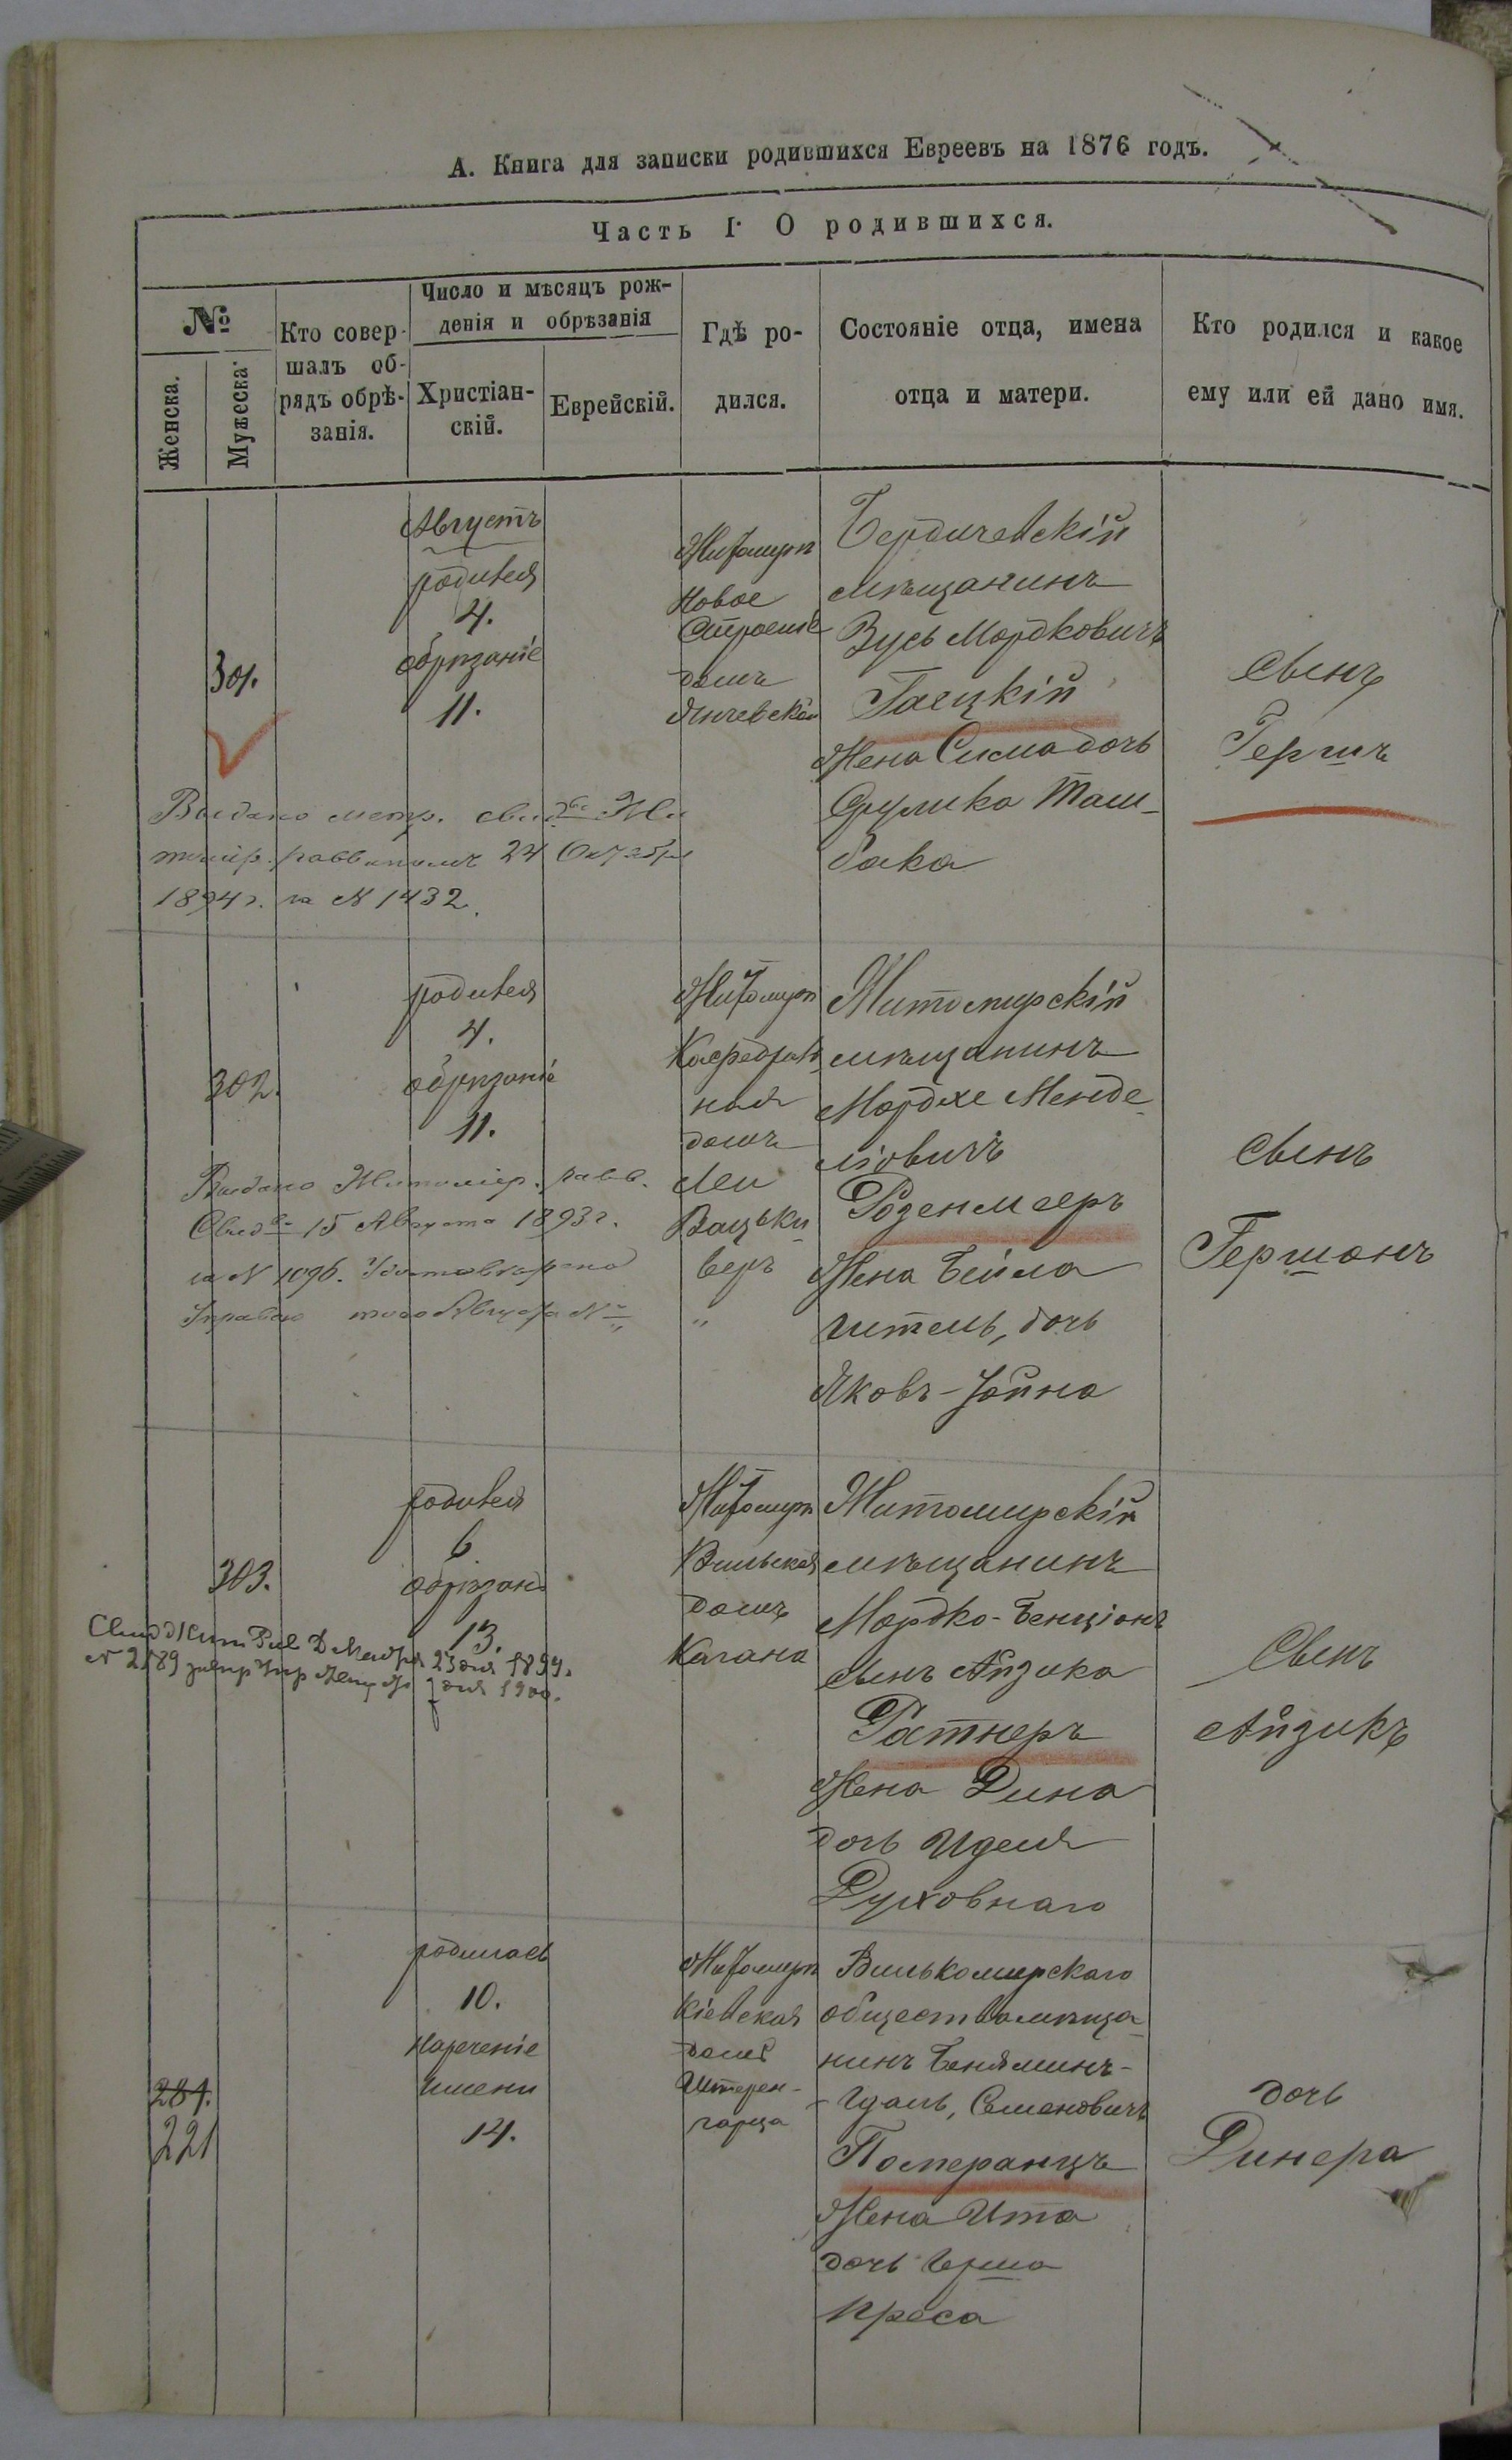 А. Книга для записки родившихся Евреевъ на 1876 годъ.
Часть I. О родившихся.
№
Женска.
Мужеска.
Кто совер-
шалъ об-
рядъ обрѣ-
занія.
Число и мѣсяцъ рож-
денія и обрѣзанія
Христіан-
скій.
Еврейскій.
Гдѣ ро-
дился.
Состояніе отца, имена
отца и матери.
Кто родился и какое
ему или ей дано имя.
301.
Августъ
родился
4.
обрѣзаніе
11.
Житомиръ
Новое
Строеніе
домъ
Бердичевскій
мѣщанинъ
Зусь Мордковичъ
Гаецкій
Жена Сима дочь
Сруlика Таш-
бака
Сынъ
Гершъ
Выдано метр. свидво Жи
томір. раввиномъ 24 Октября
1894 г. за N 1432.
302.
родился
4.
обрѣзаніе
11.
Житомиръ
Кафедраль
ная
домъ
Леи
Вацьки
веръ
"
Житомирскій
мѣщанинъ
Мордхе Менде-
лiовичъ
Розенмаеръ
Жена Бейла
Ител&#1100;, дочь
Яковъ-Іойна
Сынъ
Гершонъ
Выдано Житомір. равв.
Свидво 15 Августа 1893 г.
за N 1096.
303.
родился
6.
обрѣзаніе
13.
Житомиръ
Вильская
домъ
Кагана
Житомирскій
мѣщанинъ
Мордко-Бенціонъ
сынъ Айзика
Ратнеръ
Жена Дина
дочь Иделя
Духовнаго
Сынъ
Айзикъ
23 дня 1899.
N 2189
дня 1900.
281.
221
родилась
10.
нареченіе
имени
14.
Житомиръ
Кіевская
домъ
Штерен-
гарца
Вилькомирскаго
общества мѣща-
нинъ Беняминъ-
-Идаль, Семеновичъ
Померанцъ
Жена Ита
дочь Герша
Креса
дочь
Динера